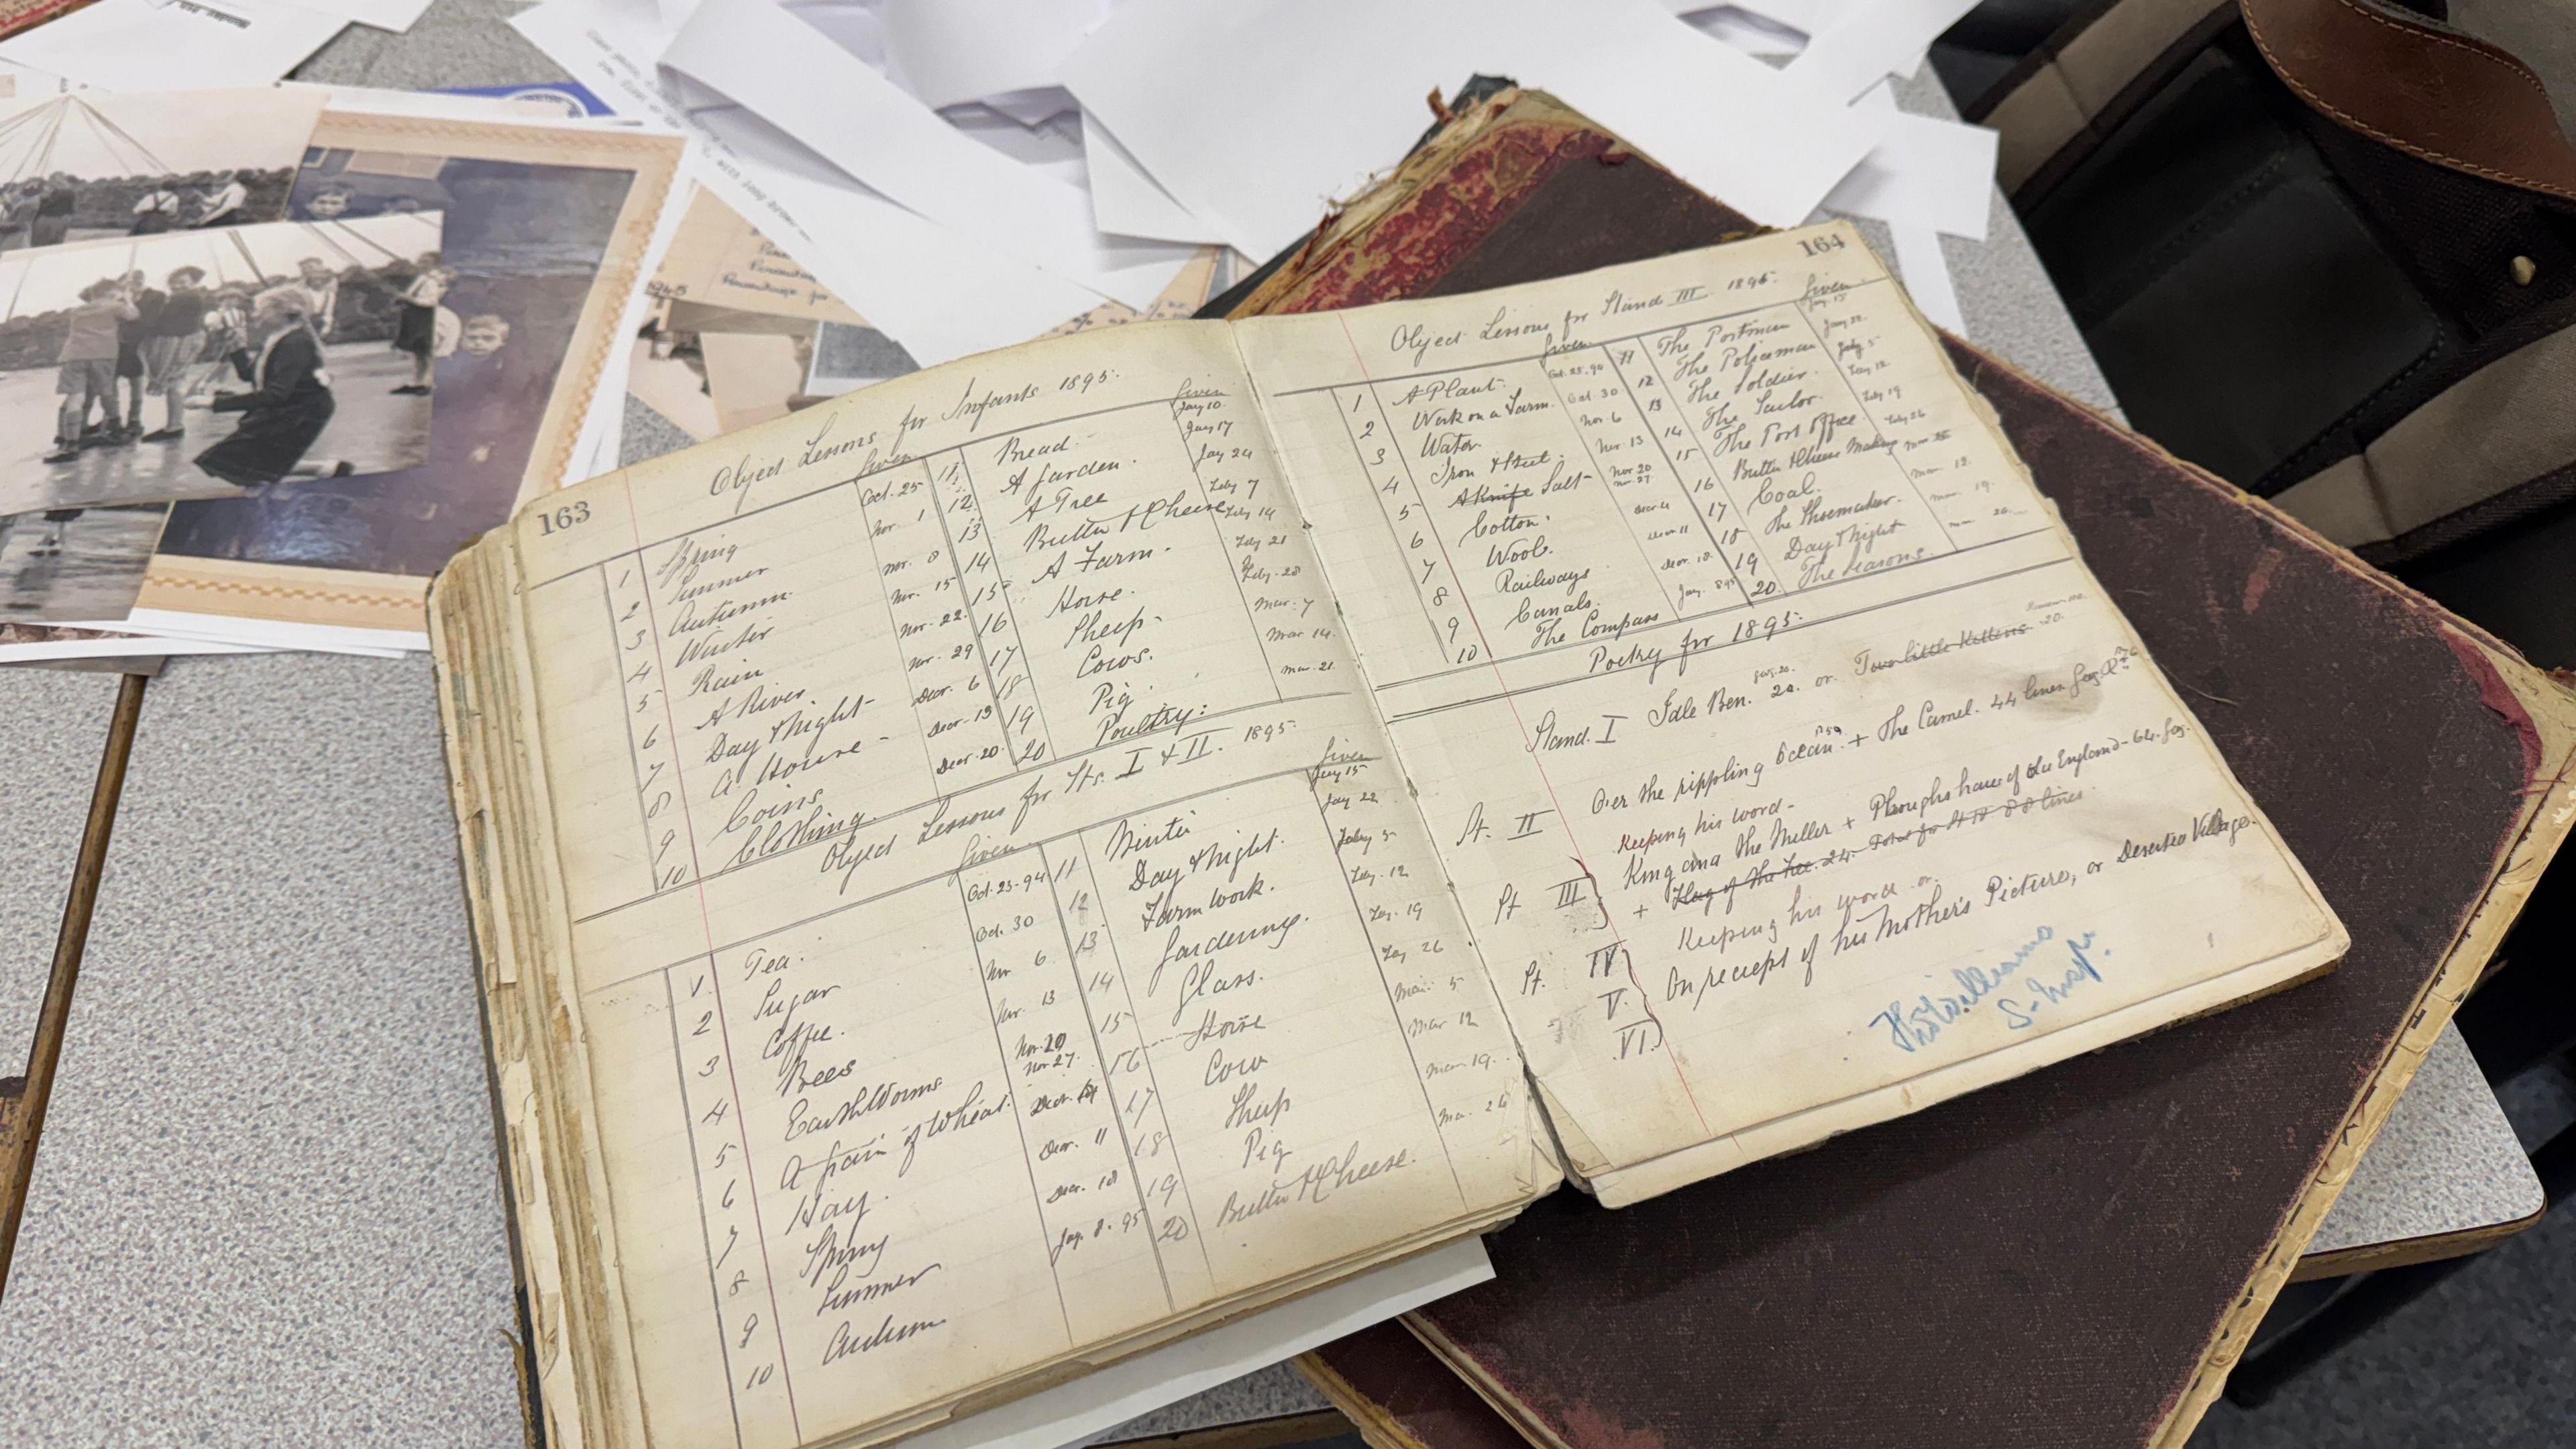 163
Object Lessons for Infants 1895.
Given Given
1 Spring Oct. 25 11 Bread Jany 10
2 Summer Nov. 1 12 A Garden. Jany 17
3 Autumn. Nov. 8 13 A Tree Jany 24
4 Winter Nov. 15 14 Butter & Cheese Feby 7
5 Rain Nov. 22 15 A Farm. Feby 14
6 A River Nov. 29 16 Horse. Feby 21
7 Day & Night Decr. 6 17 Sheep Feby. 28
8 A House Decr. 13 18 Cows. Mar. 7
9 Coins Decr. 20 19 Pig. Mar 14.
10 Clothing. 20 Poultry. Mar. 21
Object Lessons for Sts. I & II. 1895.
Given Given
1 Tea. Oct. 23-94 11 Winter Jany 15
2 Sugar Oct. 30 12 Day & Night. Jany 22
3 Coffee. Nov 6 13 Farm Work. Feby 5
4 Bees Nov. 13 14 Gardening. Feby. 12
5 Earthworms Nov. 20 Nov 27. 15 Glass. Feby. 19
6 A grain of Wheat. Decr. 4 16 Horse Feby 26
7 Hay. Decr. 11 17 Cow Mar. 5
8 Spring Decr. 18 18 Sheep Mar 12
9 Summer Jany. 8. 95 19 Pig Mar 19.
10 Autumn 20 Butter & Cheese. Mar. 26
164
Object Lessons for Stand III 1895.
Given Given
1 A Plant. Oct. 23-94 11 The Postman Jany 15
2 Work on a Farm. Oct. 30 12 The Policeman Jany 22
3 Water Nov 6 13 The Soldier. Feby. 5
4 Iron & Steel. Nov 13 14 The Sailor. Feby 12.
5 A Knife Salt Nov 20 Nov. 27. 15 The Post Office Feby 19
6 Cotton. Decr 4 16 Butter & Cheese Making Feby 26
7 Wool. Decr 11 17 Coal. Mar
8 Railways Decr. 18 18 The Shoemaker. Mar. 12.
9 Canals. Jany. 8 95 19 Day & Night Mar. 19.
10 The Compass 20. The Seasons. Mar. 26
Poetry for 1895.
Stand. I Idle Ben. 20. or Two little Kittens 20.
St. II O'er the rippling Ocean + The Camel. 44 lines
Keeping his word
St III King and the Miller + Ploughshare of Old England - 64.
+ Flag of the Free. 24. Total for St III 88 lines
Keeping his word or
St. IV V. VI. On receipt of his Mother's Picture, or Deserted Village.
Williams
S. Insp.
1945